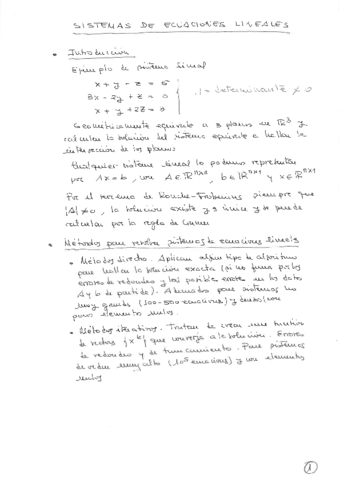 SISTEMAS DE ECUACIONES LINEALES
• Introducción
Ejemplo de sistema lineal
x + y - z = 6
3x - 2y + z = 0
x + y + 2z = 3
determinante ≠ 0
Geométricamente equivale a 3 planos en ℝ³ y
calcular la solución del sistema equivale a hallar la
intersección de los planos
Cualquier sistema lineal lo podemos representar
por Ax = b, con A ∈ ℝⁿˣⁿ, b ∈ ℝⁿˣ¹ y x ∈ ℝⁿˣ¹
Por el teorema de Rouche-Frobenius siempre que
|A| ≠ 0, la solución existe y es única y se puede
calcular por la regla de Cramer
• Métodos para resolver sistemas de ecuaciones lineales
• Métodos directos. Aplican algún tipo de algoritmo
para hallar la solución exacta (si no fuera por los
errores de redondeo y los posibles errores en los datos
A y b de partida). Adecuados para sistemas no
muy grandes (100-500 ecuaciones) y densos (con
pocos elementos nulos.
• Métodos iterativos. Tratan de crear una sucesión
de vectores {xᵏ} que converja a la solución. Errores
de redondeo y de truncamiento. Para sistemas
de orden muy alto (10⁵ ecuaciones) y con elementos
nulos
1